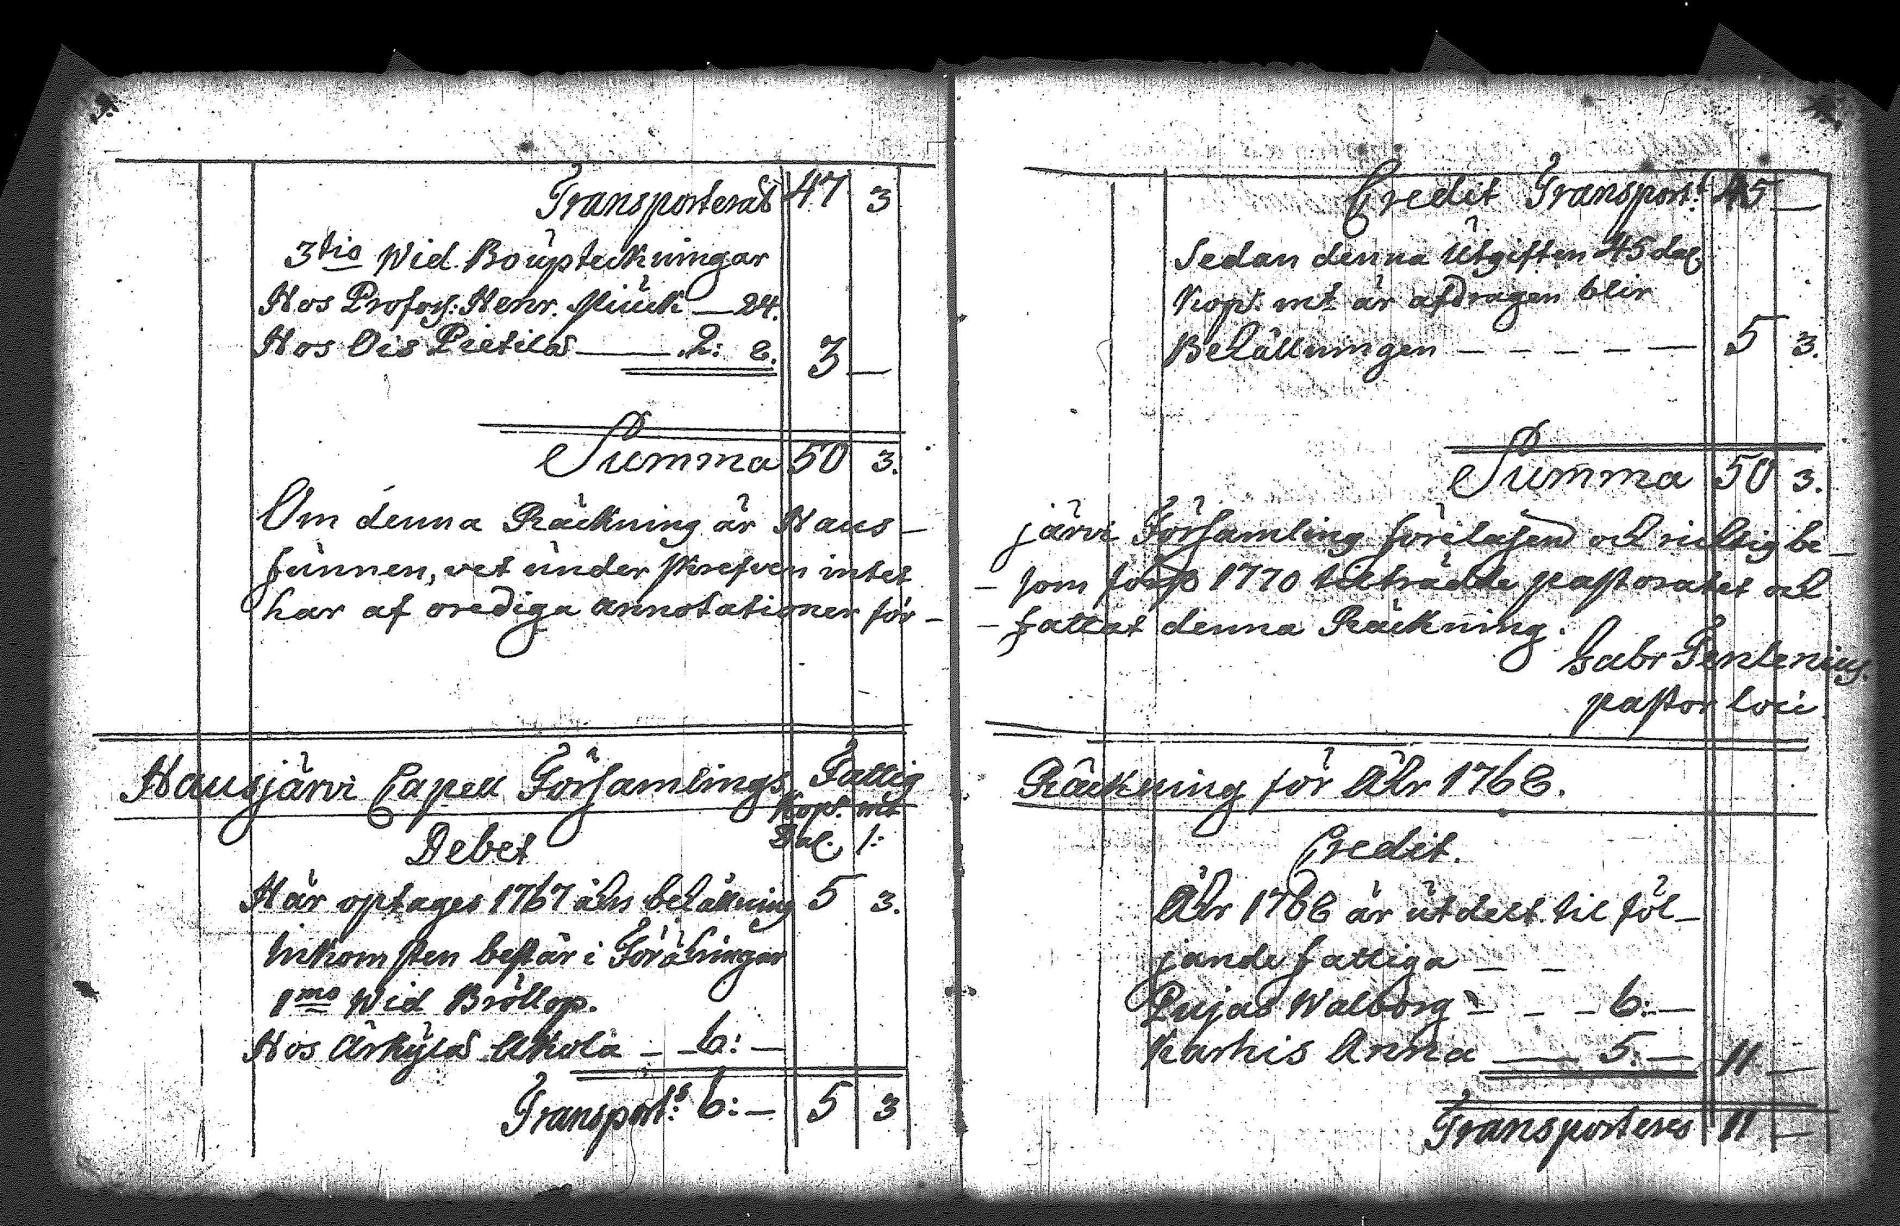 Transporteras 47 3
3tio Wid Boupteckningar
Hos Profoss: Henr. Miück — 24.
Hos Ois Pietilä — 2: 8. 3 —
Summa 50 3.
Om denna Räckning är Haus-
funnen, vet underskrefven intet
har af orediga annotationer för-
Hausjärvi Capell Församlings Fattig
Kop:r mt
Debet Dal. /:
Här optages 1767 åhrs behållning 5 3.
Inkomsten består i Föräringar
1mo Wid Bröllop.
Hos Arkylä Akola — 6: —
Transport:s 6: — 5 3
Credit Transport:t 45 —
Sedan denna Utgiften 45 dal.
Kop:r mt är afdragen blir
Behållningen — — — — — 5 3.
Summa 50 3.
järvi Församling föreläsen och richtig be-
- som först 1770 tilträdde pastoratet och
- fattat denna Räckning.
Gabr Fenlenius.
pastor loci
Räckning för Åhr 1768.
Credit.
Åhr 1768 är utdelt til föl-
jande fattiga — —
Pujas Walborg — — — 6: —
Karhis Anna — 5: — 11 —
Transporteres 11 —